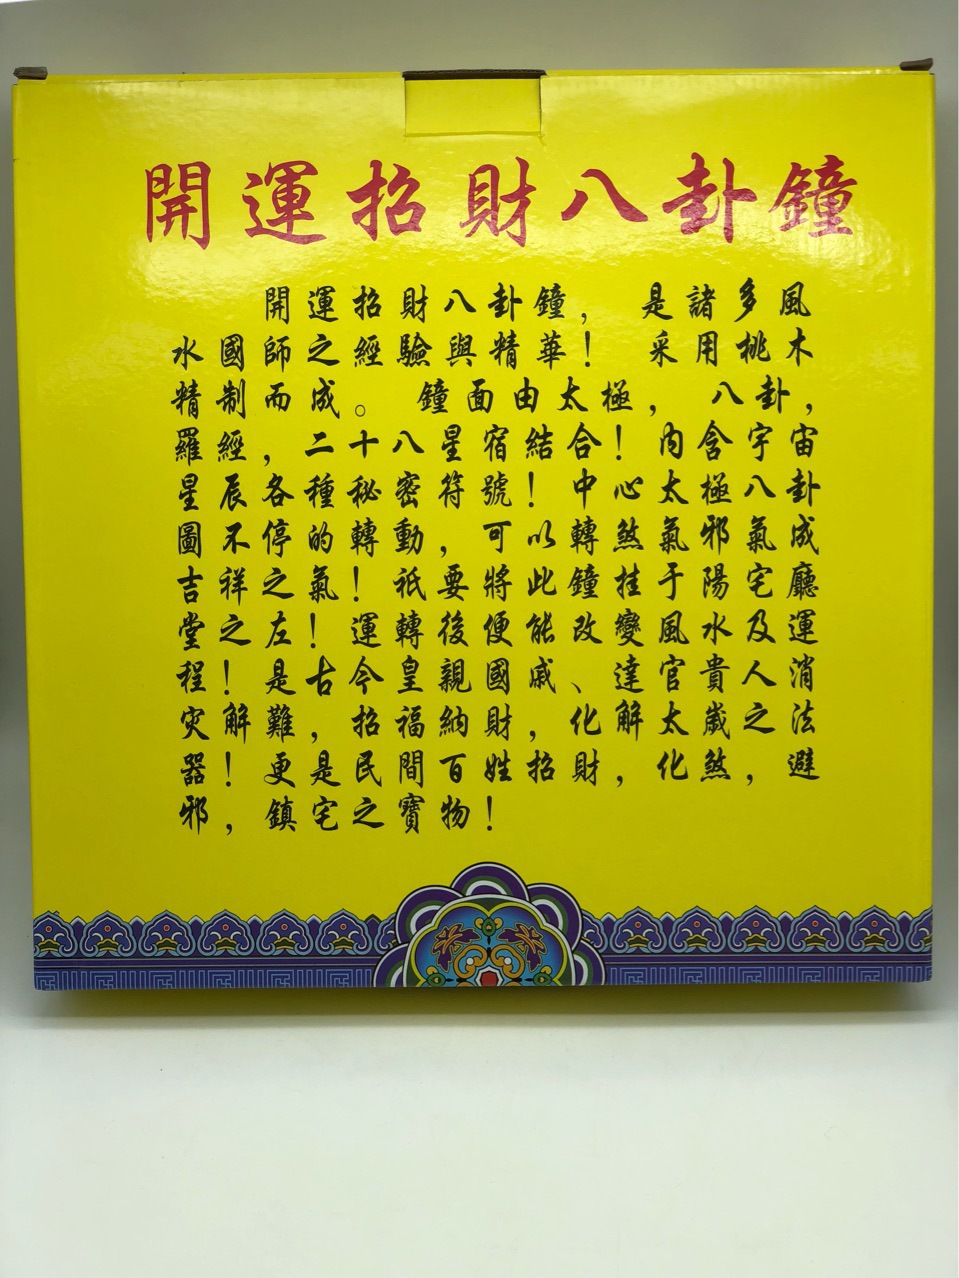 開運招財八卦鐘
開運招財八卦鐘，是諸多風
水國師之經驗與精華！采用桃木
精制而成。鐘面由太極，八卦，
羅經，二十八星宿結合！內含宇宙
星辰各種秘密符號！中心太極八卦
圖不停的轉動，可以轉煞氣邪氣成
吉祥之氣！祇要將此鐘挂于陽宅廳
堂之左！運轉後便能改變風水及運
程！是古今皇親國戚、達官貴人消
灾解難，招福納財，化解太歲之法
器！更是民間百姓招財，化煞，避
邪，鎮宅之寶物！